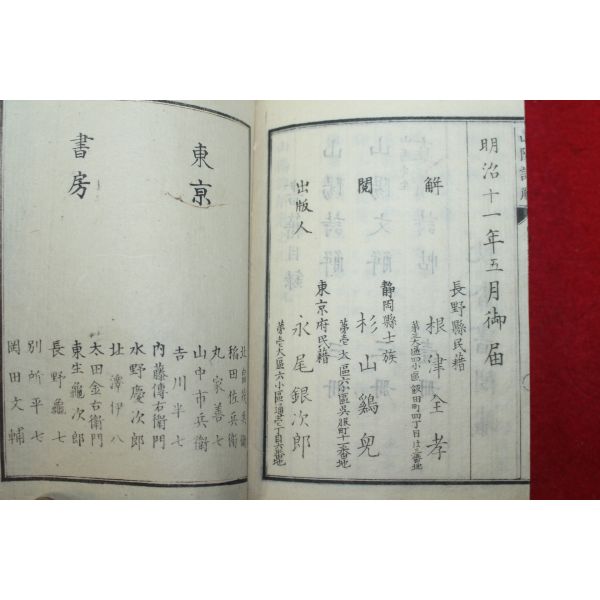 山陽詩解
明治十一年五月御届
長野縣民籍
解 根津全孝
第三大區四小區飯田町四丁目廿三番地
静岡縣士族
閲 杉山鷄兒
第壱大區六小區呉服町十二番地
東京府民籍
出版人 永尾銀次郎
第壱大區六小區通壱丁目六番地
東京
書房
稲田佐兵衛
山中市兵衛
丸家善七
吉川半七
内藤傳右衛門
水野慶次郎
北澤伊八
太田金右衛門
東生龜次郎
長野龜七
別所平七
岡田文輔